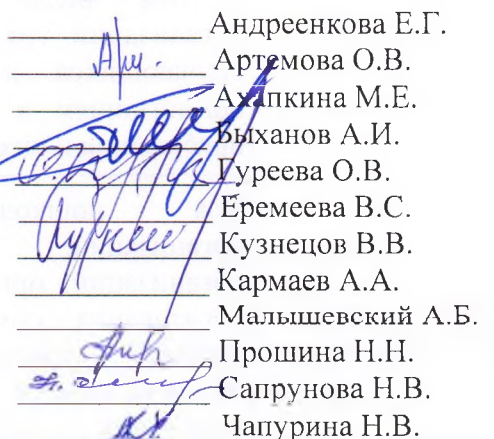 Андреенкова Е.Г.
Артемова О.В.
Ахапкина М.Е.
Быханов А.И.
Гуреева О.В.
Еремеева В.С.
Кузнецов В.В.
Кармаев А.А.
Малышевский А.Б.
Прошина Н.Н.
Сапрунова Н.В.
Чапурина Н.В.